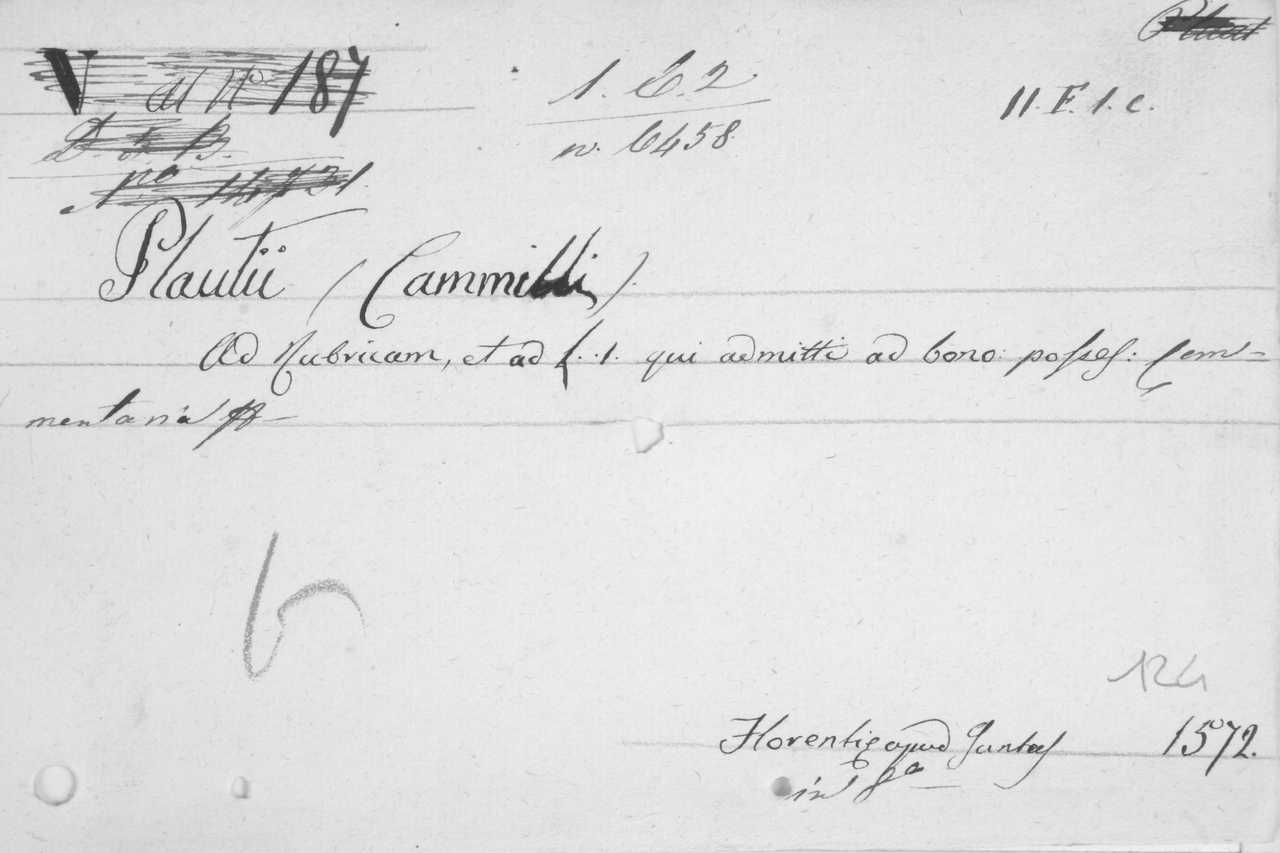 V al No. 187
D. et B.
1. E. 2
n. 6458
11. F. 1. c.
Plautii (Cammilli).
Ad Rubricam, et ad L. 1. qui admitti ad bono: posses: Com-
mentaria
124
Florentię apud Juntas 1572.
in 8o